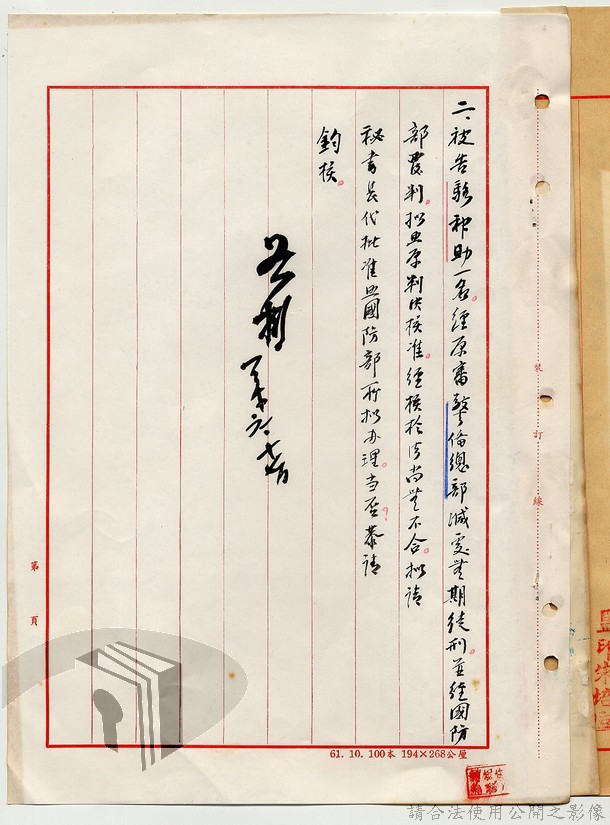 二、被告駱神助一名。經原審警備總部減處無期徒刑。並經國防
部覆判。拟照原判決核准。經核於法尚無不合。拟請
秘書長代批准照國防部所拟办理。当否?恭請
鈞核。
裝訂線
第 頁
61. 10. 100本 194×268公厘
請合法使用公開之影像